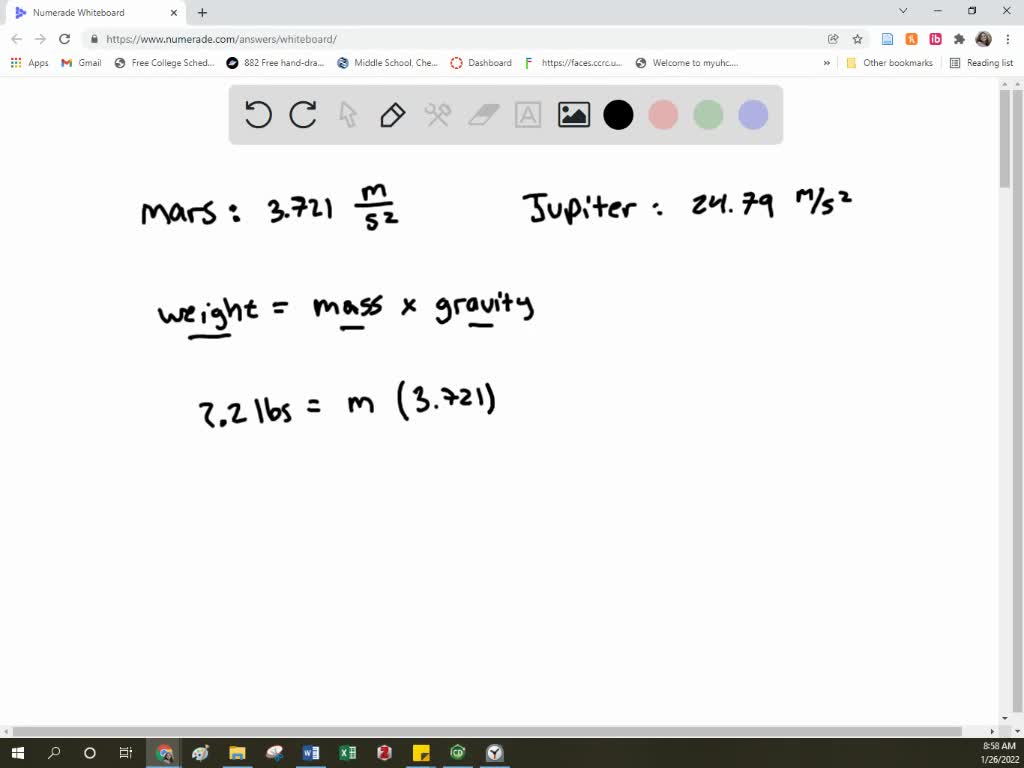 Numerade Whiteboard
https://www.numerade.com/answers/whiteboard/
Apps Gmail Free College Sched... 882 Free hand-dra... Middle School, Che... Dashboard https://faces.ccrc.u... Welcome to myuhc.... » Other bookmarks Reading list
mars: 3.721 m/s2 Jupiter: 24.79 m/s2
weight = mass x gravity
?.2 lbs = m (3.721)
8:58 AM
1/26/2022